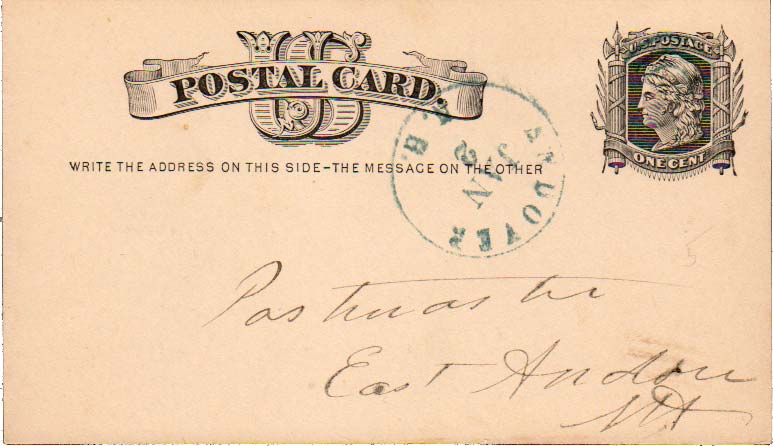 US
POSTAL CARD.
U.S. POSTAGE
ONE CENT
WRITE THE ADDRESS ON THIS SIDE-THE MESSAGE ON THE OTHER
ANDOVER
JAN
2
Postmaster
East Andover
NH